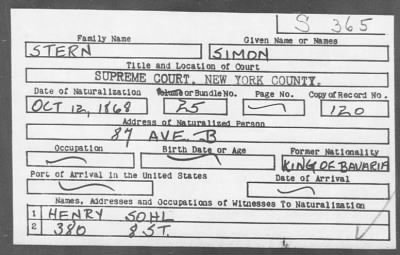 S 365
Family Name Given Name or Names
STERN SIMON
Title and Location of Court
SUPREME COURT, NEW YORK COUNTY.
Date of Naturalization Volume or Bundle No. Page No. Copy of Record No.
OCT 12, 1868 25 120
Address of Naturalized Person
87 AVE. B
Occupation Birth Date or Age Former Nationality
KING OF BAVARIA
Port of Arrival in the United States Date of Arrival
Names, Addresses and Occupations of Witnesses To Naturalization
1 HENRY SOHL
2 380 8 ST.